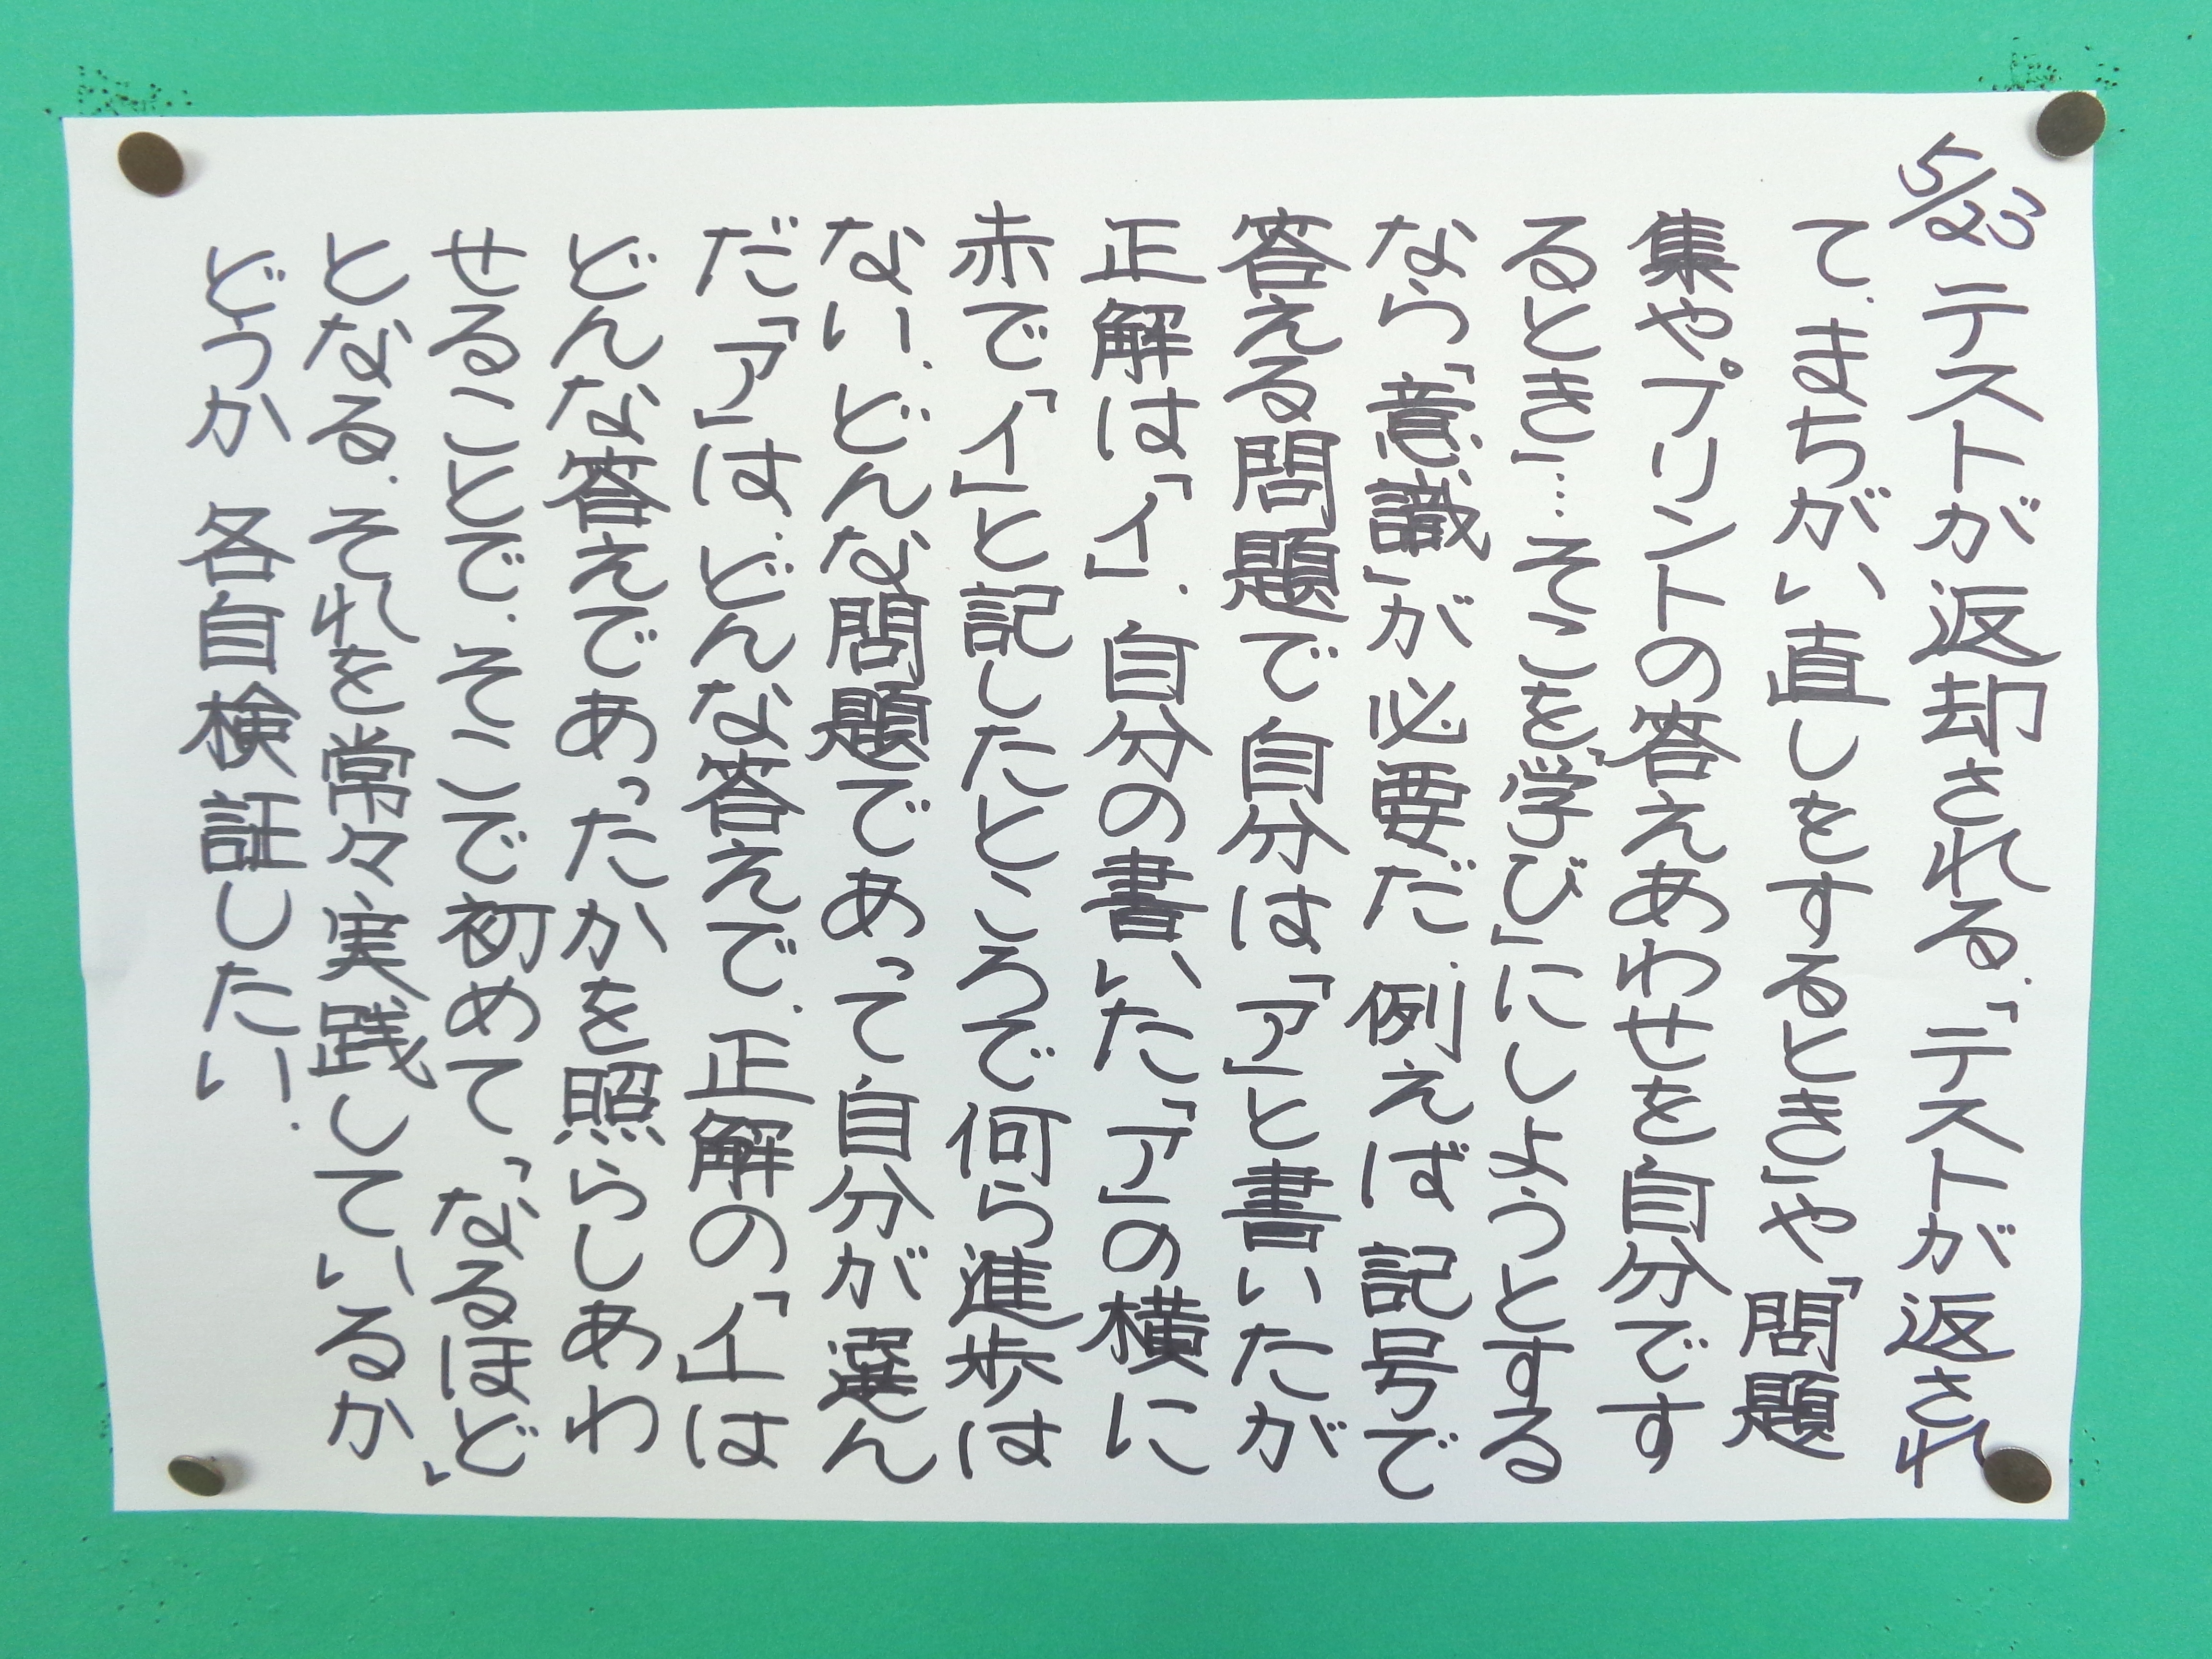 5/23 テストが返却される.「テストが返され
て.まちがい直しをするとき」や「問題
集やプリントの答えあわせを自分です
るとき」…そこを「学び」にしようとする
なら「意識」が必要だ.例えば記号で
答える問題で自分は「ア」と書いたが
正解は「イ」.自分の書いた「ア」の横に
赤で「イ」と記したところで何ら進歩は
ない.どんな問題であって自分が選ん
だ「ア」は.どんな答えで.正解の「イ」は
どんな答えであったかを照らしあわ
せることで.そこで初めて「なるほど」
となる.それを常々実践しているか
どうか 各自検証したい.